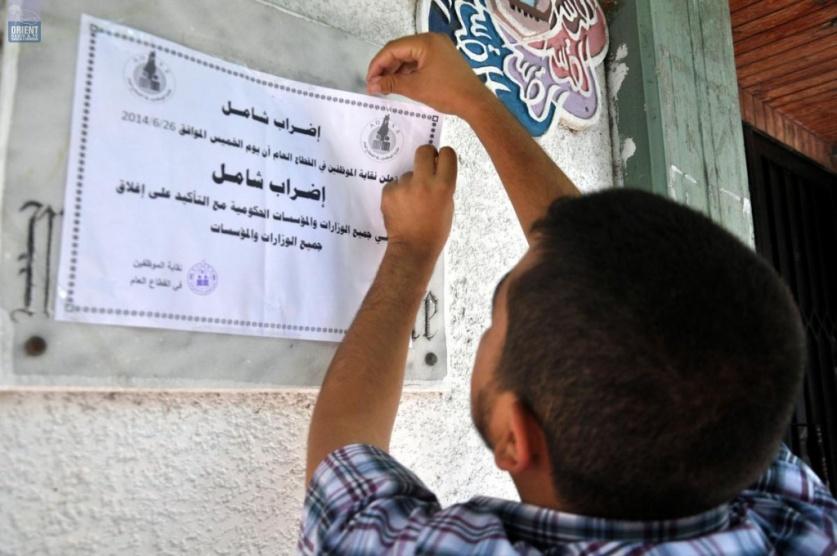 ORIENT
اضراب شامل
تعلن نقابة الموظفين في القطاع العام أن يوم الخميس الموافق 2014/6/26
اضراب شامل
في جميع الوزارات والمؤسسات الحكومية مع التأكيد على إغلاق
جميع الوزارات والمؤسسات
نقابة الموظفين
في القطاع العام